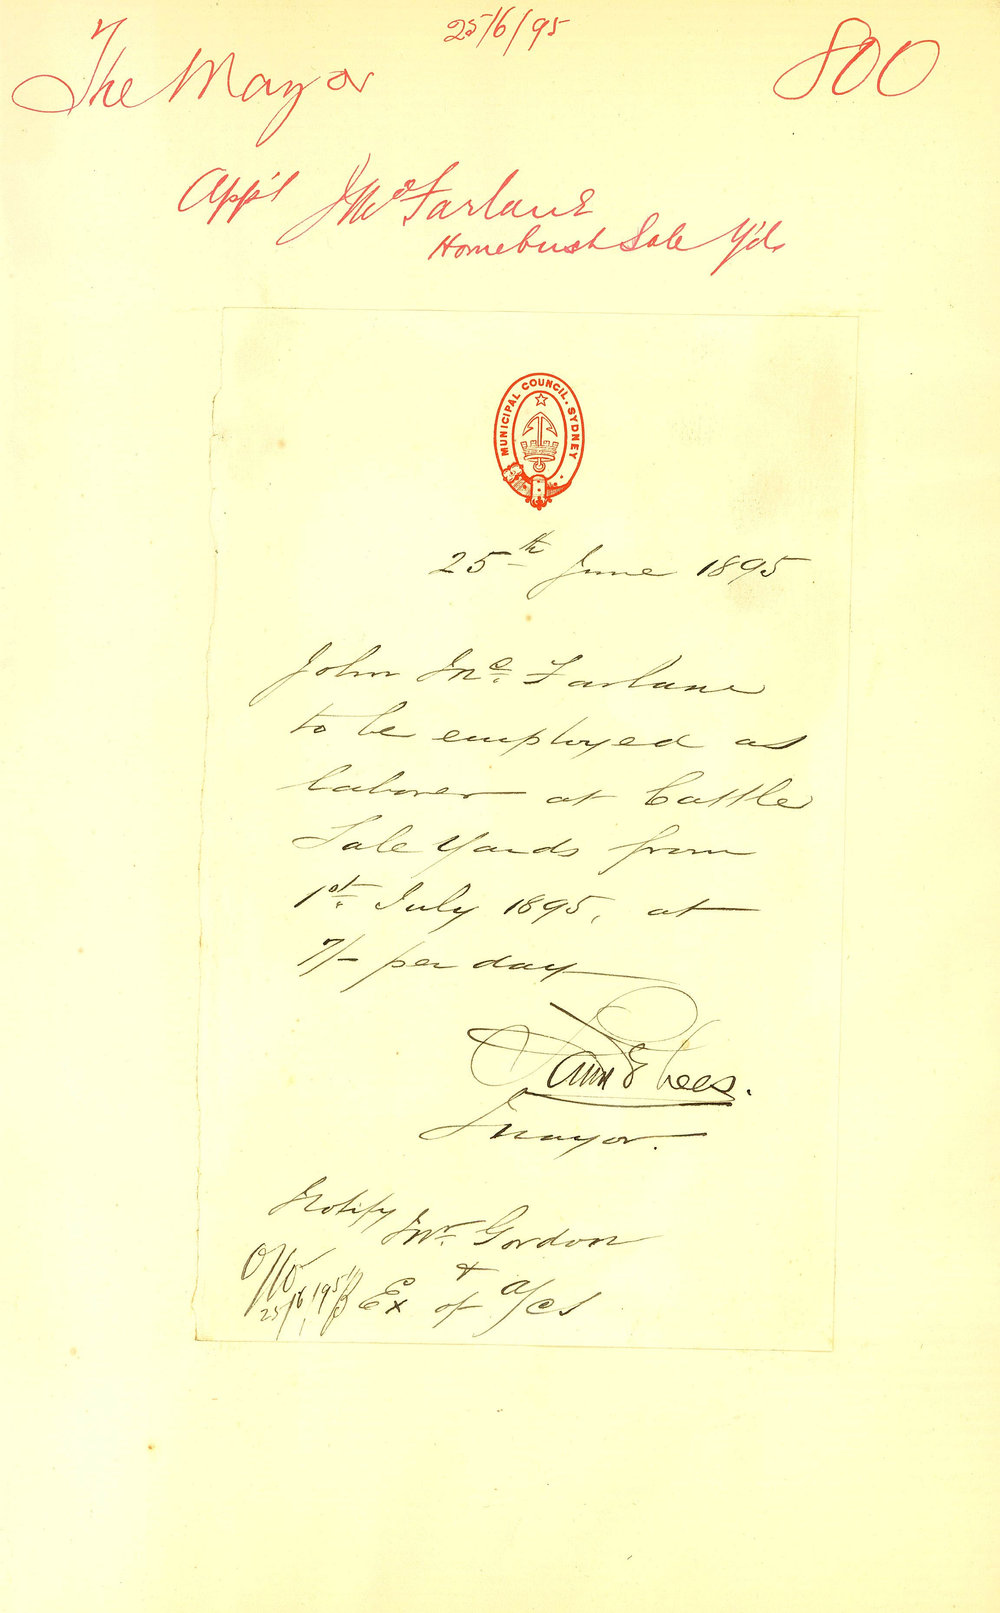 25/6/95
The Mayor
800
App'l J McFarlane
Homebush Sale Y'ds
MUNICIPAL COUNCIL. SYDNEY
25th June 1895
John Mc. Farlane
to be employed as
laborer at Cattle
Sale Yards from
1st. July 1895, at
7/- per day
Saml E Lees.
Mayor.
Notify Mr. Gordon
+
Ex of a/cs
25/6/95